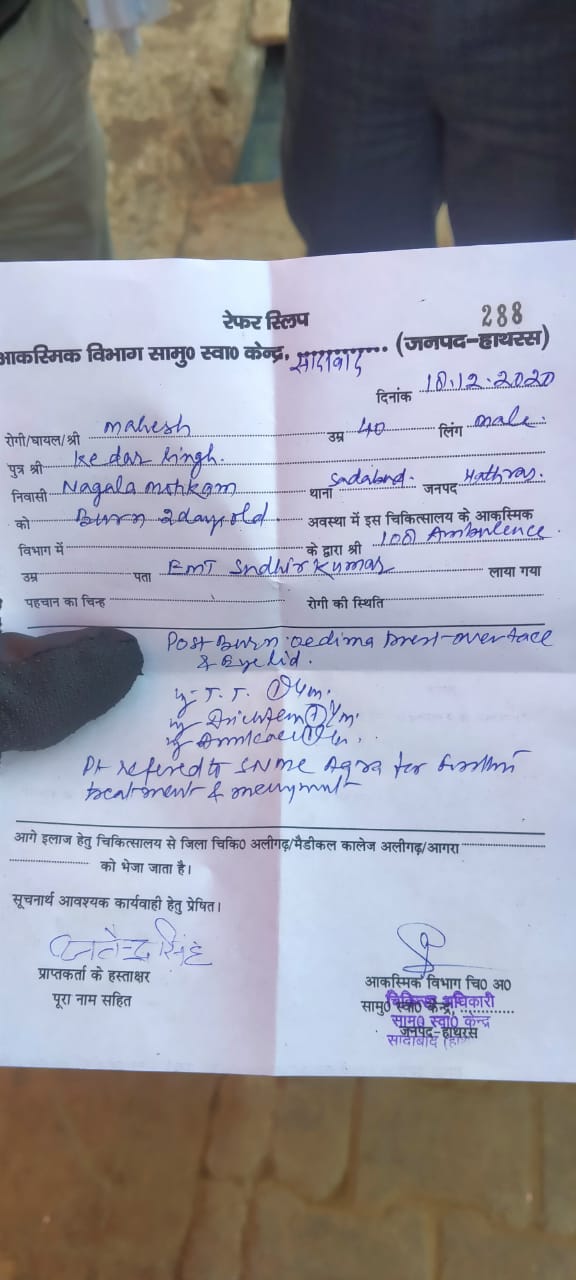 रेफर स्लिप
288
आकस्मिक विभाग सामु0 स्वा0 केन्द्र, सादाबाद (जनपद-हाथरस)
दिनांक 18.12.2020
रोगी/घायल/श्री mahesh उम्र 40 लिंग male.
पुत्र श्री Kedar Singh.
निवासी Nagala mohkam थाना Sadabad. जनपद Hathras.
को Burn 2 days old. अवस्था में इस चिकित्सालय के आकस्मिक
विभाग में के द्वारा श्री 108 Ambulence.
उम्र पता EMT Sudhir Kumar लाया गया
पहचान का चिन्ह रोगी की स्थिति
Post Burn oedima over face
& Eyelid.
T. T.
Pt refered to SNMC Agra for
treatment &
आगे इलाज हेतु चिकित्सालय से जिला चिकि0 अलीगढ़/मैडीकल कालेज अलीगढ़/आगरा
को भेजा जाता है।
सूचनार्थ आवश्यक कार्यवाही हेतु प्रेषित।
सिंह
प्राप्तकर्ता के हस्ताक्षर
पूरा नाम सहित
आकस्मिक विभाग चि0 अ0
सामु0 स्वा0 केन्द्र,
जनपद-हाथरस
चिकित्सा अधिकारी
सामु0 स्वा0 केन्द्र
सादाबाद